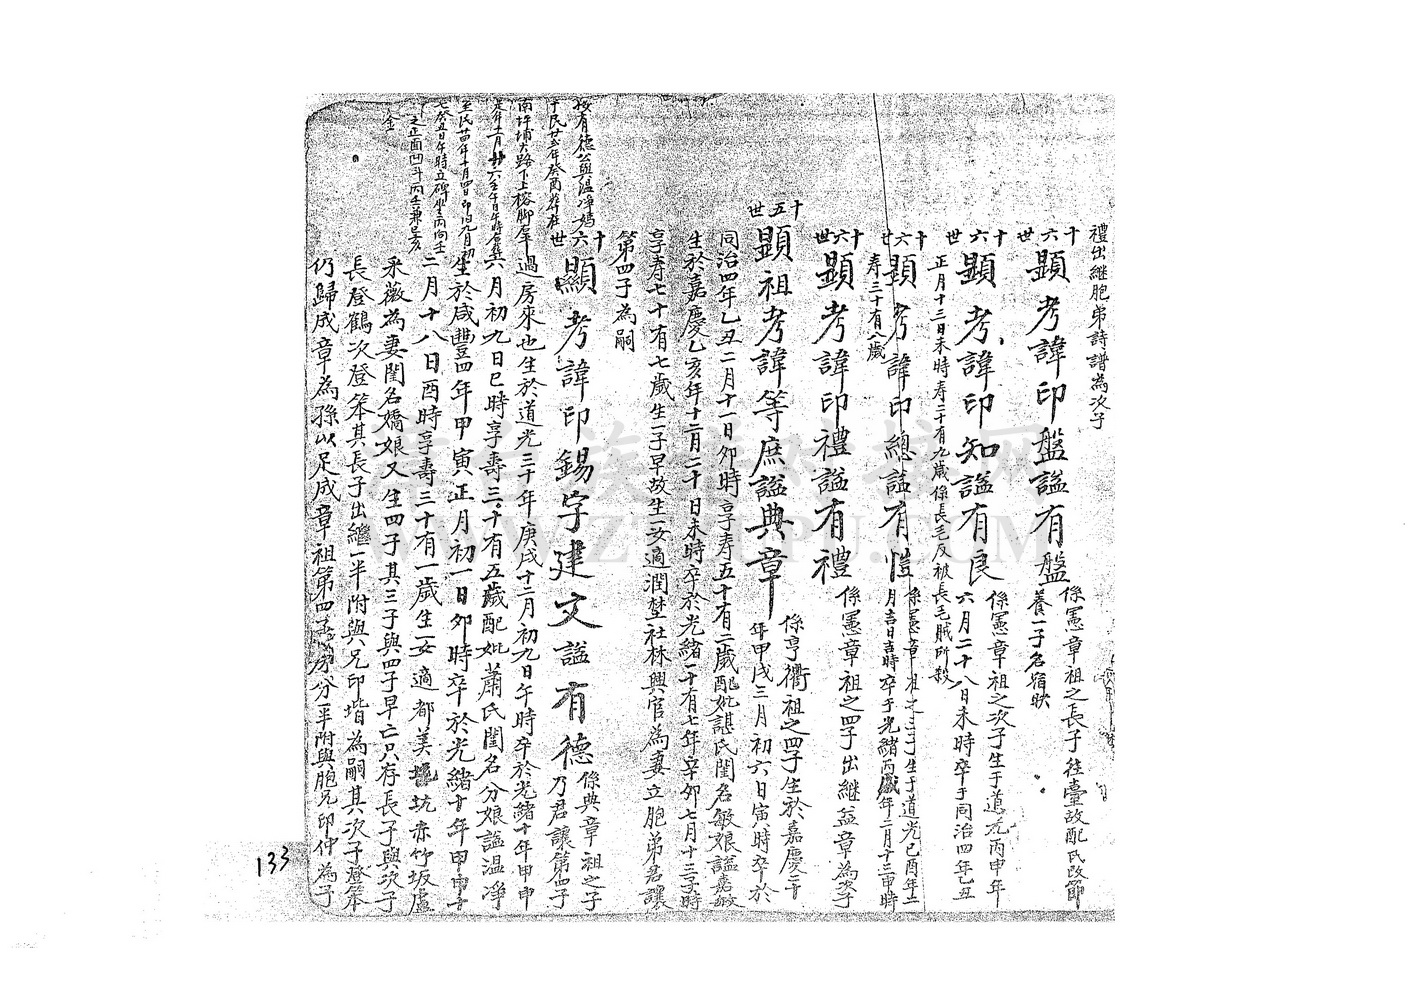 禮出繼胞弟詩譜為次子
十六世
顯考諱印盤謚有盤
係憲章祖之長子往臺故配氏改節
養一子名宿映
十六世
顯考諱印知謚有良
係憲章祖之次子生于道光丙申年
六月二十八日未時卒于同治四年乙丑
正月十三日未時壽二十有九歲係長毛反被長毛賊所殺
十六世
顯考諱印總謚有愷
係憲章祖之三子生于道光己酉年十二
月吉日吉時卒于光緒丙戌年二月十三申時
壽三十有八歲
十六世
顯考諱印禮謚有禮
係憲章祖之四子出継益章為次子
十五世
顯祖考諱等庶謚典章
係亨衢祖之四子生於嘉慶二十
年甲戌三月初六日寅時卒於
同治四年乙丑二月十一日卯時享寿五十有二歲配妣諶氏閨名敏娘謚嘉敏
生於嘉慶乙亥年十二月二十日未時卒於光緒一十有七年辛卯七月十三亥時
享寿七十有七歲生一子早故生一女適潤埜社林興官為妻立胞弟君讓
第四子為嗣
十六世
顯考諱印錫字建文謚有德
係典章祖之子
乃君讓第四子
過房來也生於道光三十年庚戌十二月初九日午時卒於光緒十年甲申
六月初九日巳時享壽三十有五歲配妣蕭氏閨名分娘謚温凈
生於咸豐四年甲寅正月初一日卯時卒於光緒十年甲申
二月十八日酉時享壽三十有一歲生一女適都美坑赤竹坂盧
釆薇為妻閨名嬌娘又生四子其三子與四子早亡只存長子與次子
長登鶴次登笨其長子出繼一半附與兄印堦為嗣其次子登笨
仍歸成章為孫以足成章祖第四房分一半附與胞兄印仲為子
按有德公與温凈媽
于民廿二年癸酉葬在
南坪埔大路下上榕脚犀
是年十一月廿六壬午日午時
至民廿四年十月四日即旧九月初
七癸丑日午時立碑坐丙向壬
之正面凹斗丙壬兼巳亥
金
133